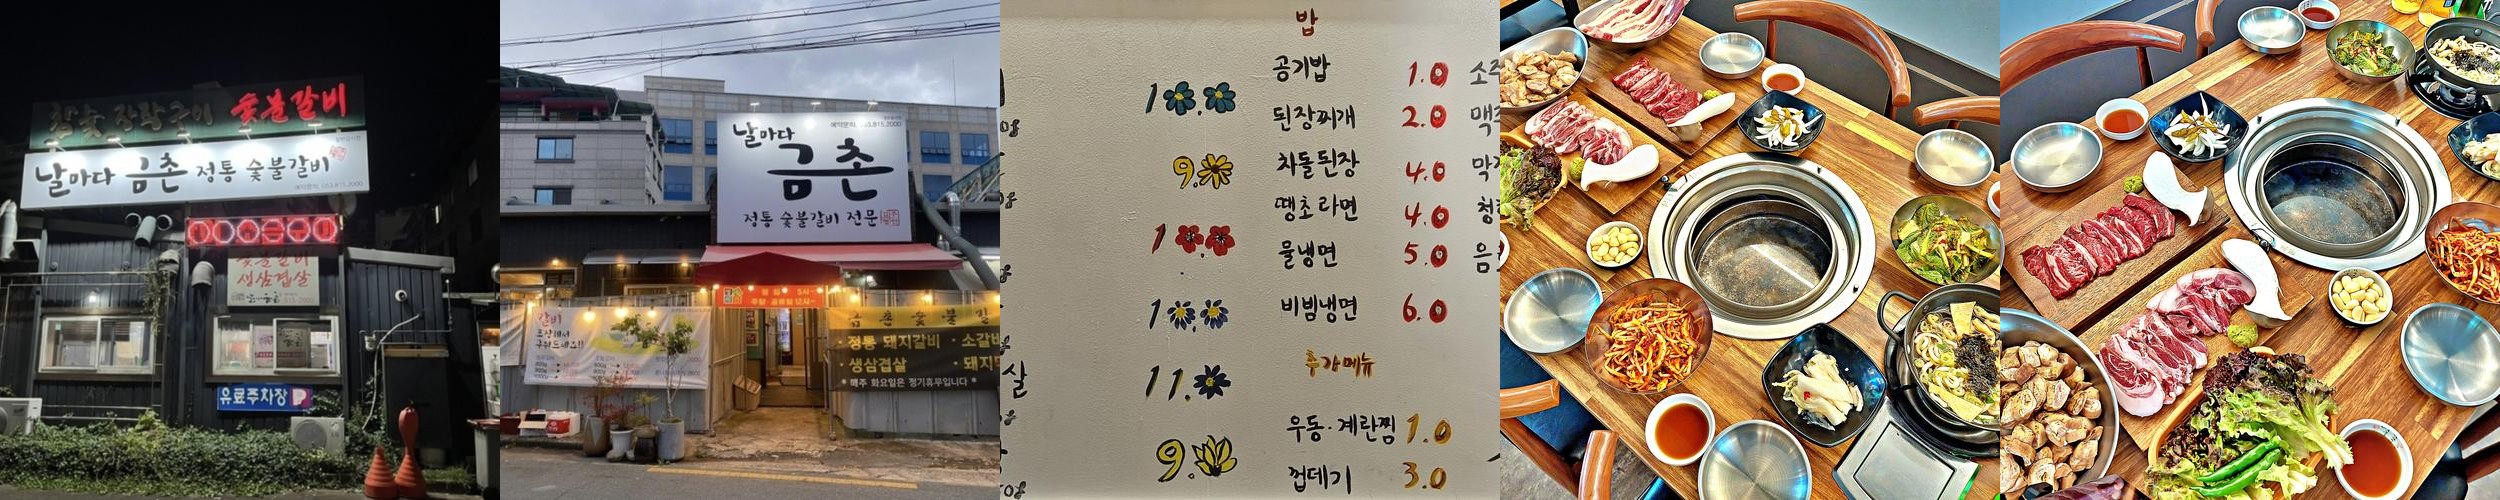 참숯 장작구이 숯불갈비
날마다 금촌 정통 숯불갈비
예약문의. 053.815.2000
숯불갈비
생삼겹살
유료주차장 P
예약문의. 053.815.2000
날마다
금촌
정통 숯불갈비 전문
갈비
구워드세요!!
금 촌 숯 불 갈
· 정통 돼지갈비 · 소갈비
· 생삼겹살 · 돼지
* 매주 화요일은 정기휴무입니다 *
밥
공기밥 1.0
된장찌개 2.0
차돌된장 4.0
땡초라면 4.0
물냉면 5.0
비빔냉면 6.0
추가메뉴
우동·계란찜 1.0
껍데기 3.0
1
9.
1
1
11.
9.
살